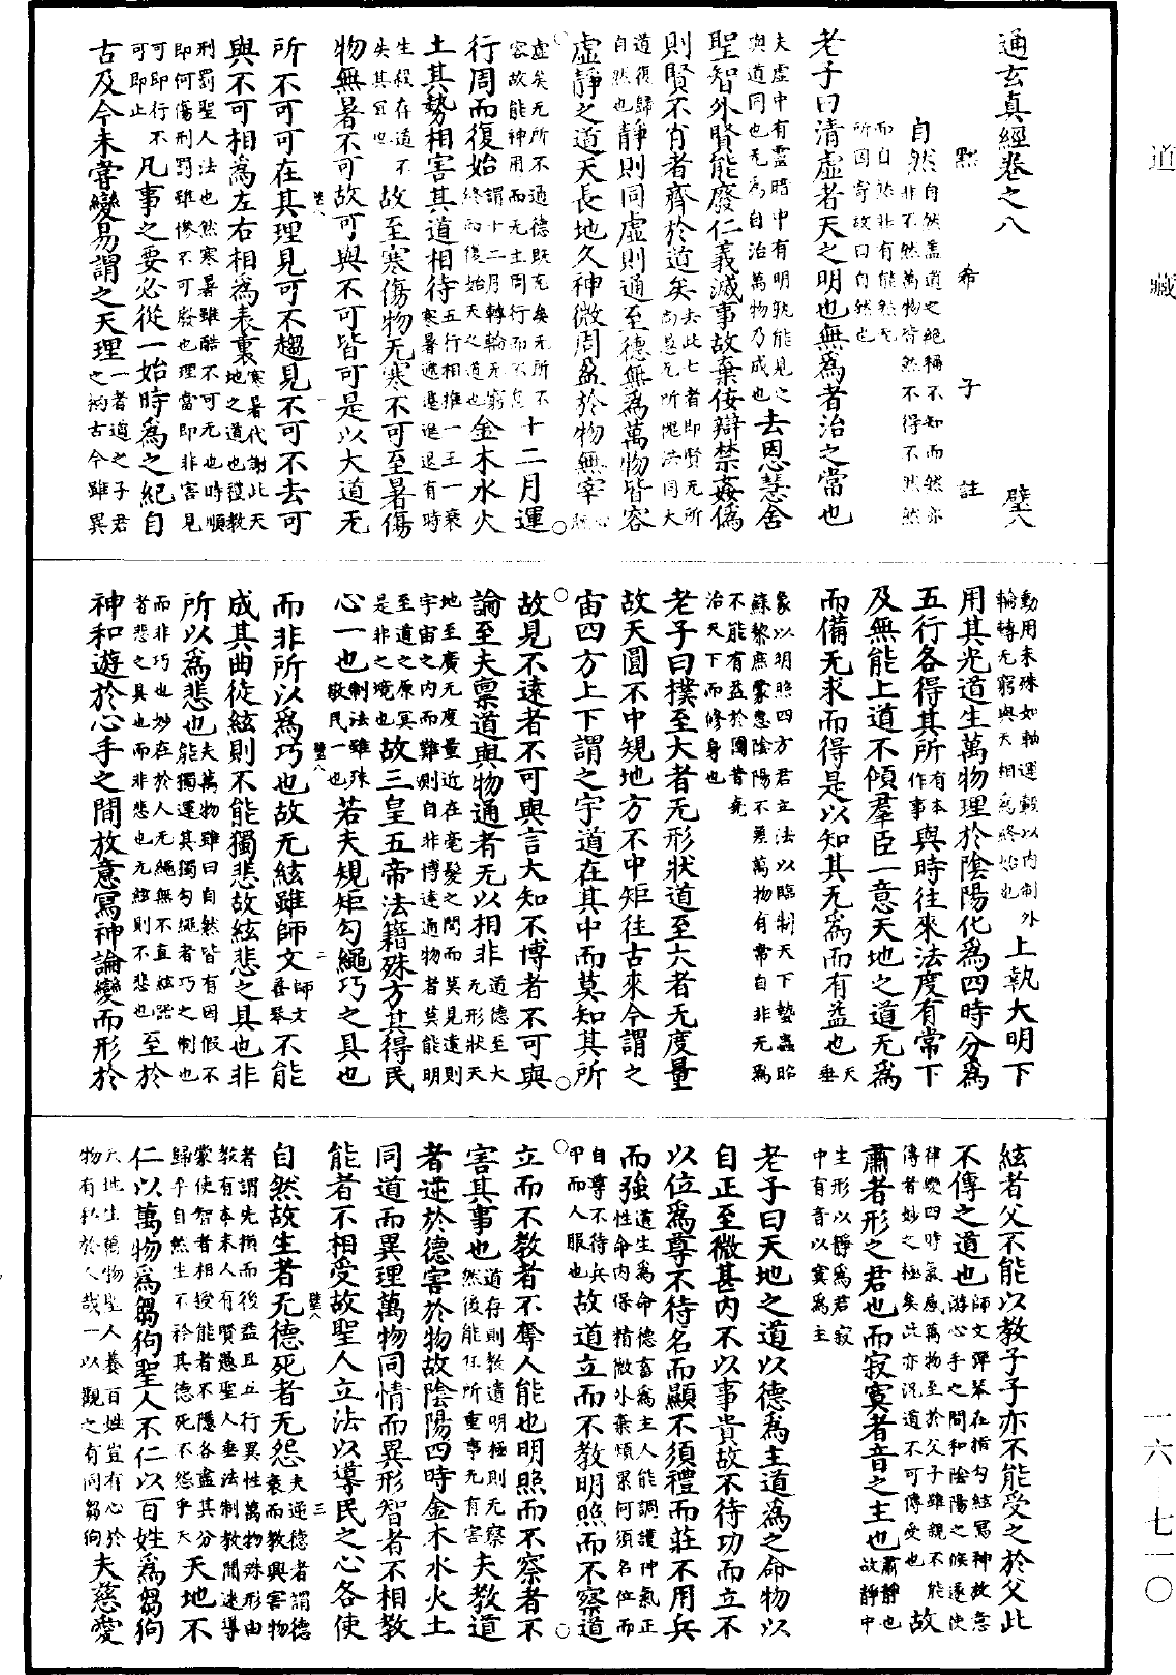 道藏
一六—七一〇
通玄真經卷之八 壁八
默希子註
自然自然蓋道之絕稱不知而然亦
非不然萬物皆然不得不然然
而自然非有能然无
所因寄故曰自然也
老子曰清虛者天之明也無爲者治之常也
夫虛中有靈暗中有明孰能見之
與道同也无爲自治萬物乃成也去恩慧舍
聖智外賢能廢仁義滅事故棄佞辯禁姦僞
則賢不肖者齊於道矣去此七者即賢无所
尚愚无所愧混同大
道復歸
自然也靜則同虛則通至德無爲萬物皆容
虛靜之道天長地久神微周盈於物無宰
虛矣无所不通德既充矣无所不
容故能神用而无主周行而不怠十二月運
行周而復始謂十二月轉輪无窮
終而復始天之道也金木水火
土其勢相害其道相待五行相推一王一衰
寒暑遞遷進退有時
生殺存道不
失其宜也故至寒傷物无寒不可至暑傷
物無暑不可故可與不可皆可是以大道无
所不可可在其理見可不趨見不可不去可
與不可相爲左右相爲表裏寒暑代謝此天
地之道也禮教
刑罰聖人法也然寒暑雖酷不可无也時順
即何傷刑罰雖慘不可廢也理當即非害見
可即行不
可即止凡事之要必從一始時爲之紀自
古及今未嘗變易謂之天理一者道之子君
之柄古今雖異
動用未殊如軸運轂以內制外
輪轉无窮與天相爲終始也上執大明下
用其光道生萬物理於陰陽化爲四時分爲
五行各得其所有本
作事與時往來法度有常下
及無能上道不傾羣臣一意天地之道无爲
而備无求而得是以知其无爲而有益也天
垂
象以明照四方君立法以臨制天下蟄蟲昭
蘇黎庶蒙惠陰陽不差萬物有常自非无爲
不能有益於國昔堯
治天下而修身也
老子曰撲至大者无形狀道至大者无度量
故天圓不中規地方不中矩往古來今謂之
宙四方上下謂之宇道在其中而莫知其所
故見不遠者不可與言大知不博者不可與
論至夫稟道與物通者无以相非道德至大
无形狀天
地至廣无度量近在毫髮之間而莫見遠則
宇宙之內而難測自非博達通物者莫能明
至道之原冥
是非之境也故三皇五帝法籍殊方其得民
心一也制法雖殊
敬民一也若夫規矩勾繩巧之具也
而非所以爲巧也故无絃雖師文師文
善琴不能
成其曲徒絃則不能獨悲故絃悲之具也非
所以爲悲也夫萬物雖曰自然皆有因假不
能獨運其獨勾繩者巧之制也
而非巧也妙在於人无繩無不直絃器
者悲之具也而非悲也无絃則不悲也至於
神和遊於心手之間放意寫神論變而形於
絃者父不能以教子子亦不能受之於父此
不傳之道也師文彈琴在指勾絃寫神放意
游心手之間和陰陽之候遂使
律變四時氣感萬物至於父子雖親不能
傳者妙之極矣此亦況道不可傳受也故
肅者形之君也而寂寞者音之主也肅靜也
故靜中
生形以靜爲君寂
中有音以寞爲主
老子曰天地之道以德爲主道爲之命物以
自正至微甚內不以事貴故不待功而立不
以位爲尊不待名而顯不須禮而莊不用兵
而強道生爲命德畜爲主人能調護沖氣正
性命內保精微外棄煩累何須名位而
自尊不待兵
甲而人服也故道立而不教明照而不察道
立而不教者不奪人能也明照而不察者不
害其事也道存則教遺明極則无察
然後能任所重事无有害夫教道
者逆於德害於物故陰陽四時金木水火土
同道而異理萬物同情而異形智者不相教
能者不相受故聖人立法以導民之心各使
自然故生者无德死者无怨夫逆德者謂德
衰而教興害物
者謂先損而後益且五行異性萬物殊形由
教有本末人有賢愚聖人垂法制教開迷導
蒙使智者相授能者不隱各盡其分
歸乎自然生不矜其德死不怨乎天天地不
仁以萬物爲芻狗聖人不仁以百姓爲芻狗
天地生萬物聖人養百姓豈有心於
物有私於人哉一以觀之有同芻狗夫慈愛